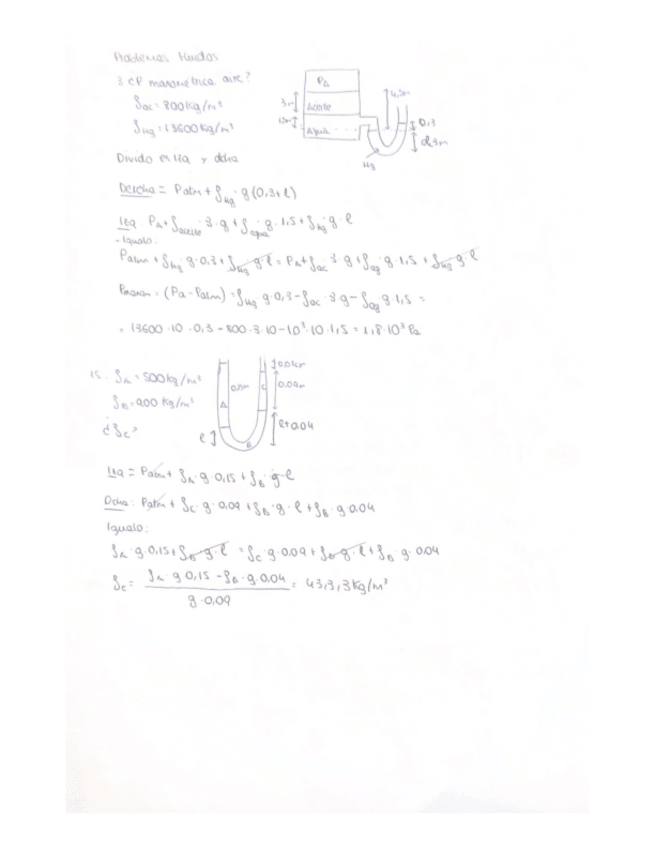 Problemas Fluidos
3. ¿P manométrica aire?
ρac = 800 kg/m³
ρHg = 13600 kg/m³
PA
3m Aceite
1,5m Agua
0,3
Hg
Divido en izq y dcha
Derecha = Patm + ρHg · g (0,3 + l)
Izq PA + ρaceite · 3 · g + ρagua · g · 1,5 + ρHg · g · l
- Igualo:
Patm + ρHg · g · 0,3 + ρHg · g · l = PA + ρac · 3 · g + ρag · g · 1,5 + ρHg · g · l
Pmanom = (Pa - Patm) = ρHg · g · 0,3 - ρac · 3 · g - ρag · g · 1,5 =
= 13600 · 10 · 0,3 - 800 · 3 · 10 - 10³ · 10 · 1,5 = 1,8 · 10³ Pa
15. ρA = 500 kg/m³
ρB = 900 kg/m³
¿ρc?
A
B
C
0,09m
l
l + 0,04
Izq = Patm + ρA · g · 0,15 + ρB · g · l
Dcha: Patm + ρc · g · 0,09 + ρB · g · l + ρB · g · 0,04
Igualo:
ρA · g · 0,15 + ρB · g · l = ρc · g · 0,09 + ρB · g · l + ρB · g · 0,04
ρc = ρA · g · 0,15 - ρB · g · 0,04 / g · 0,09 = 433,3 kg/m³